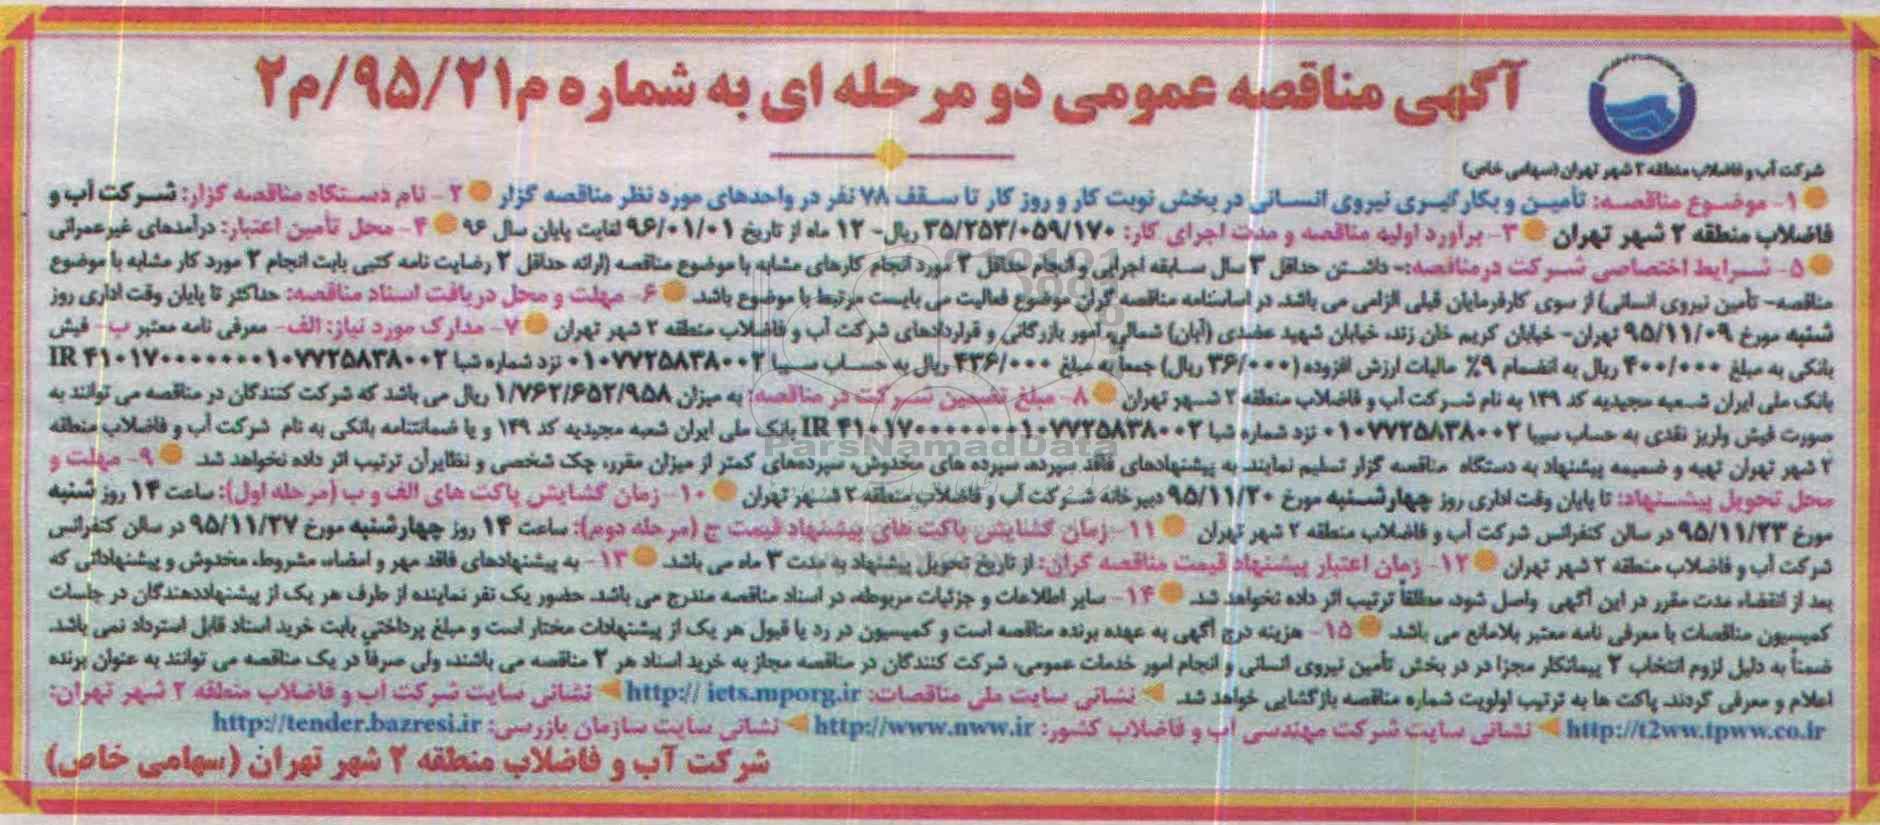 آگهی مناقصه عمومی دو مرحله ای به شماره م۹۵/۲۱/م۲
شرکت آب و فاضلاب منطقه ۲ شهر تهران (سهامی خاص)
۱- موضوع مناقصه: تأمین و بکارگیری نیروی انسانی در بخش نوبت کار و روز کار تا سقف ۷۸ نفر در واحدهای مورد نظر مناقصه گزار ۲- نام دستگاه مناقصه گزار: شرکت آب و
فاضلاب منطقه ۲ شهر تهران ۳- برآورد اولیه مناقصه و مدت اجرای کار: ۳۵/۲۵۳/۰۵۹/۱۷۰ ریال- ۱۲ ماه از تاریخ ۹۶/۰۱/۰۱ لغایت پایان سال ۹۶ ۴- محل تأمین اعتبار: درآمدهای غیرعمرانی
۵- شرایط اختصاصی شرکت در مناقصه:- داشتن حداقل ۳ سال سابقه اجرایی و انجام حداقل ۲ مورد انجام کارهای مشابه با موضوع مناقصه (ارائه حداقل ۲ رضایت نامه کتبی بابت انجام ۲ مورد کار مشابه با موضوع
مناقصه- تأمین نیروی انسانی) از سوی کارفرمایان قبلی الزامی می باشد. در اساسنامه مناقصه گران موضوع فعالیت می بایست مرتبط با موضوع باشد. ۶- مهلت و محل دریافت اسناد مناقصه: حداکثر تا پایان وقت اداری روز
شنبه مورخ ۹۵/۱۱/۰۹ تهران- خیابان کریم خان زند، خیابان شهید عضدی (آبان) شمالی، امور بازرگانی و قراردادهای شرکت آب و فاضلاب منطقه ۲ شهر تهران ۷- مدارک مورد نیاز: الف- معرفی نامه معتبر ب- فیش
بانکی به مبلغ ۴۰۰/۰۰۰ ریال به انضمام ۹٪ مالیات ارزش افزوده (۳۶/۰۰۰ ریال) جمعاً به مبلغ ۴۳۶/۰۰۰ ریال به حساب سیبا ۰۱۰۷۷۲۵۸۳۸۰۰۲ نزد شماره شبا IR ۴۱۰۱۷۰۰۰۰۰۰۰۱۰۷۷۲۵۸۳۸۰۰۲
بانک ملی ایران شعبه مجیدیه کد ۱۴۹ به نام شرکت آب و فاضلاب منطقه ۲ شهر تهران ۸- مبلغ تضمین شرکت در مناقصه: به میزان ۱/۷۶۲/۶۵۲/۹۵۸ ریال می باشد که شرکت کنندگان در مناقصه می توانند به
صورت فیش واریز نقدی به حساب سیبا ۰۱۰۷۷۲۵۸۳۸۰۰۲ نزد شماره شبا IR ۴۱۰۱۷۰۰۰۰۰۰۰۱۰۷۷۲۵۸۳۸۰۰۲ بانک ملی ایران شعبه مجیدیه کد ۱۴۹ و یا ضمانتنامه بانکی به نام شرکت آب و فاضلاب منطقه
۲ شهر تهران تهیه و ضمیمه پیشنهاد به دستگاه مناقصه گزار تسلیم نمایند. به پیشنهادهای فاقد سپرده، سپرده های مخدوش، سپرده‌های کمتر از میزان مقرر، چک شخصی و نظایر آن ترتیب اثر داده نخواهد شد. ۹- مهلت و
محل تحویل پیشنهاد: تا پایان وقت اداری روز چهارشنبه مورخ ۹۵/۱۱/۲۰ دبیرخانه شرکت آب و فاضلاب منطقه ۲ شهر تهران ۱۰- زمان گشایش پاکت های الف و ب (مرحله اول): ساعت ۱۴ روز شنبه
مورخ ۹۵/۱۱/۲۳ در سالن کنفرانس شرکت آب و فاضلاب منطقه ۲ شهر تهران ۱۱- زمان گشایش پاکت های پیشنهاد قیمت ج (مرحله دوم): ساعت ۱۴ روز چهارشنبه مورخ ۹۵/۱۱/۲۷ در سالن کنفرانس
شرکت آب و فاضلاب منطقه ۲ شهر تهران ۱۲- زمان اعتبار پیشنهاد قیمت مناقصه گران: از تاریخ تحویل پیشنهاد به مدت ۳ ماه می باشد. ۱۳- به پیشنهادهای فاقد مهر و امضاء، مشروط، مخدوش و پیشنهاداتی که
بعد از انقضاء مدت مقرر در این آگهی واصل شود، مطلقاً ترتیب اثر داده نخواهد شد. ۱۴- سایر اطلاعات و جزئیات مربوطه، در اسناد مناقصه مندرج می باشد. حضور یک نفر نماینده از طرف هر یک از پیشنهاددهندگان در جلسات
کمیسیون مناقصات با معرفی نامه معتبر بلامانع می باشد. ۱۵- هزینه درج آگهی به عهده برنده مناقصه است و کمیسیون در رد یا قبول هر یک از پیشنهادات مختار است و مبلغ پرداختی بابت خرید اسناد قابل استرداد نمی باشد.
ضمناً به دلیل لزوم انتخاب ۲ پیمانکار مجزا در در بخش تأمین نیروی انسانی و انجام امور خدمات عمومی، شرکت کنندگان در مناقصه مجاز به خرید اسناد هر ۲ مناقصه می باشند، ولی صرفاً در یک مناقصه می توانند به عنوان برنده
اعلام و معرفی گردند. پاکت ها به ترتیب اولویت شماره مناقصه بازگشایی خواهد شد. نشانی سایت ملی مناقصات: http:// iets.mporg.ir نشانی سایت شرکت آب و فاضلاب منطقه ۲ شهر تهران:
http://t2ww.tpww.co.ir نشانی سایت شرکت مهندسی آب و فاضلاب کشور: http://www.nww.ir نشانی سایت سازمان بازرسی: http://tender.bazresi.ir
شرکت آب و فاضلاب منطقه ۲ شهر تهران (سهامی خاص)
ParsNamadData